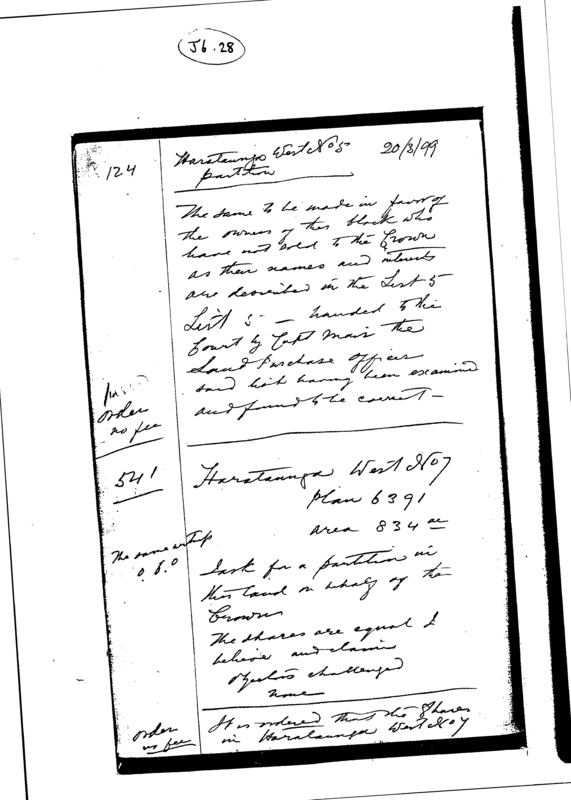 J6.28
124
Harataunga West No 5 20/3/99
partition
The same to be made in favor of
the owners of this block who
have not sold to the Crown
as their names and interests
are described in the List 5
List 5 — handed to the
Court by Capt Mair the
Land Purchase Officer
said list having been examined
and found to be correct —
order
no fee
541
Harataunga West No 7
Plan 6391
area 834 ac
The same
0.6.0
I ask for a partition in
this land on behalf of the
Crown
The shares are equal I
believe and claim
Objectors challenged
none
order
no fee
It is ordered that the Shares
in Harataunga West No 7